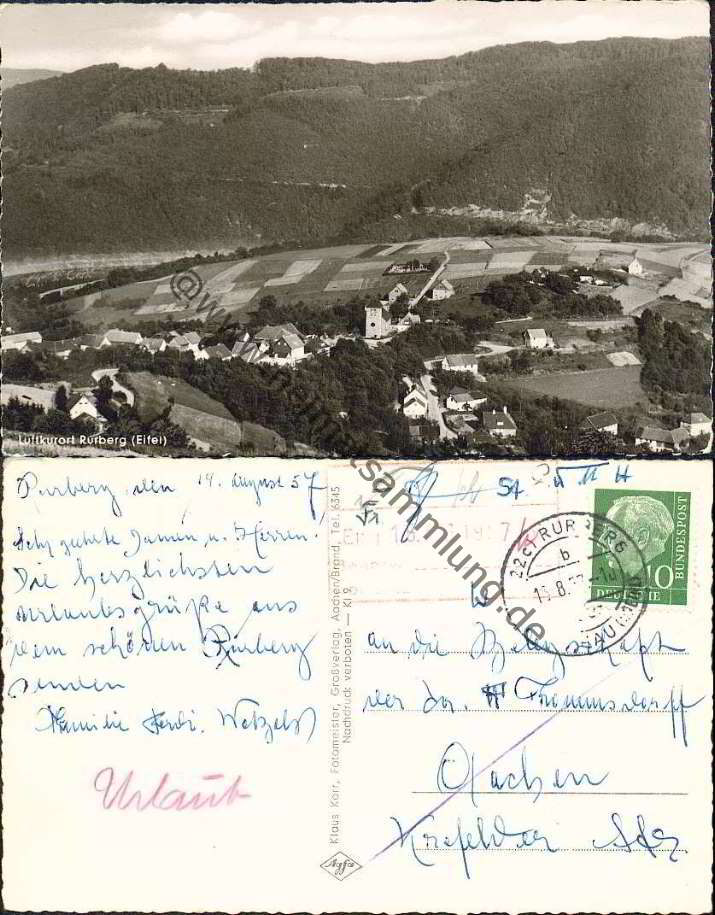 Luftkurort Rurberg (Eifel)
Rurberg den 14. August 57
Sehr geehrte Damen u. Herren.
Die herzlichsten
Urlaubsgrüße aus
dem schönen Rurberg
senden
Familie Ferdi. Wetzels
Urlaub
Klaus Korr, Fotomeister, Großverlag, Aachen/Brand, Tel. 6345
Nachdruck verboten — Kl 9
Agfa
22c RURBERG
b
DEUTSCHE BUNDESPOST
10
an die Belegschaft
der Fa. Thommsdorff
Aachen
Krefelder Str
www.heimatsammlung.de